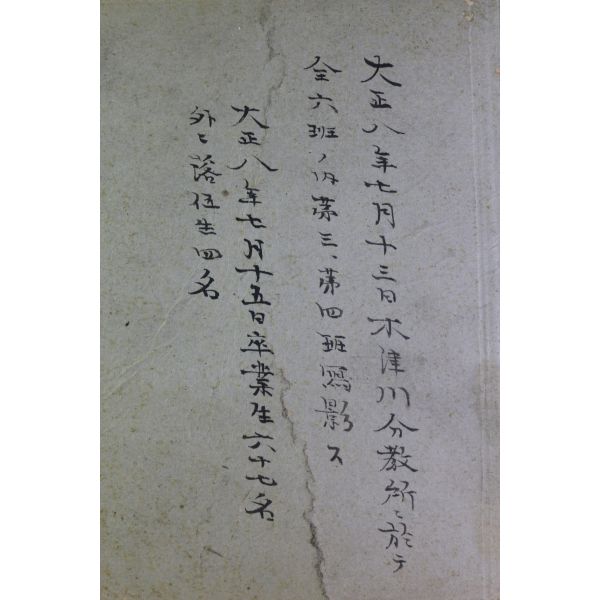 大正八年七月十三日木津川分教所ニ於テ
全六班ノ内第三、第四班寫影ス
大正八年七月十五日卒業生六十七名
外ニ落伍生四名